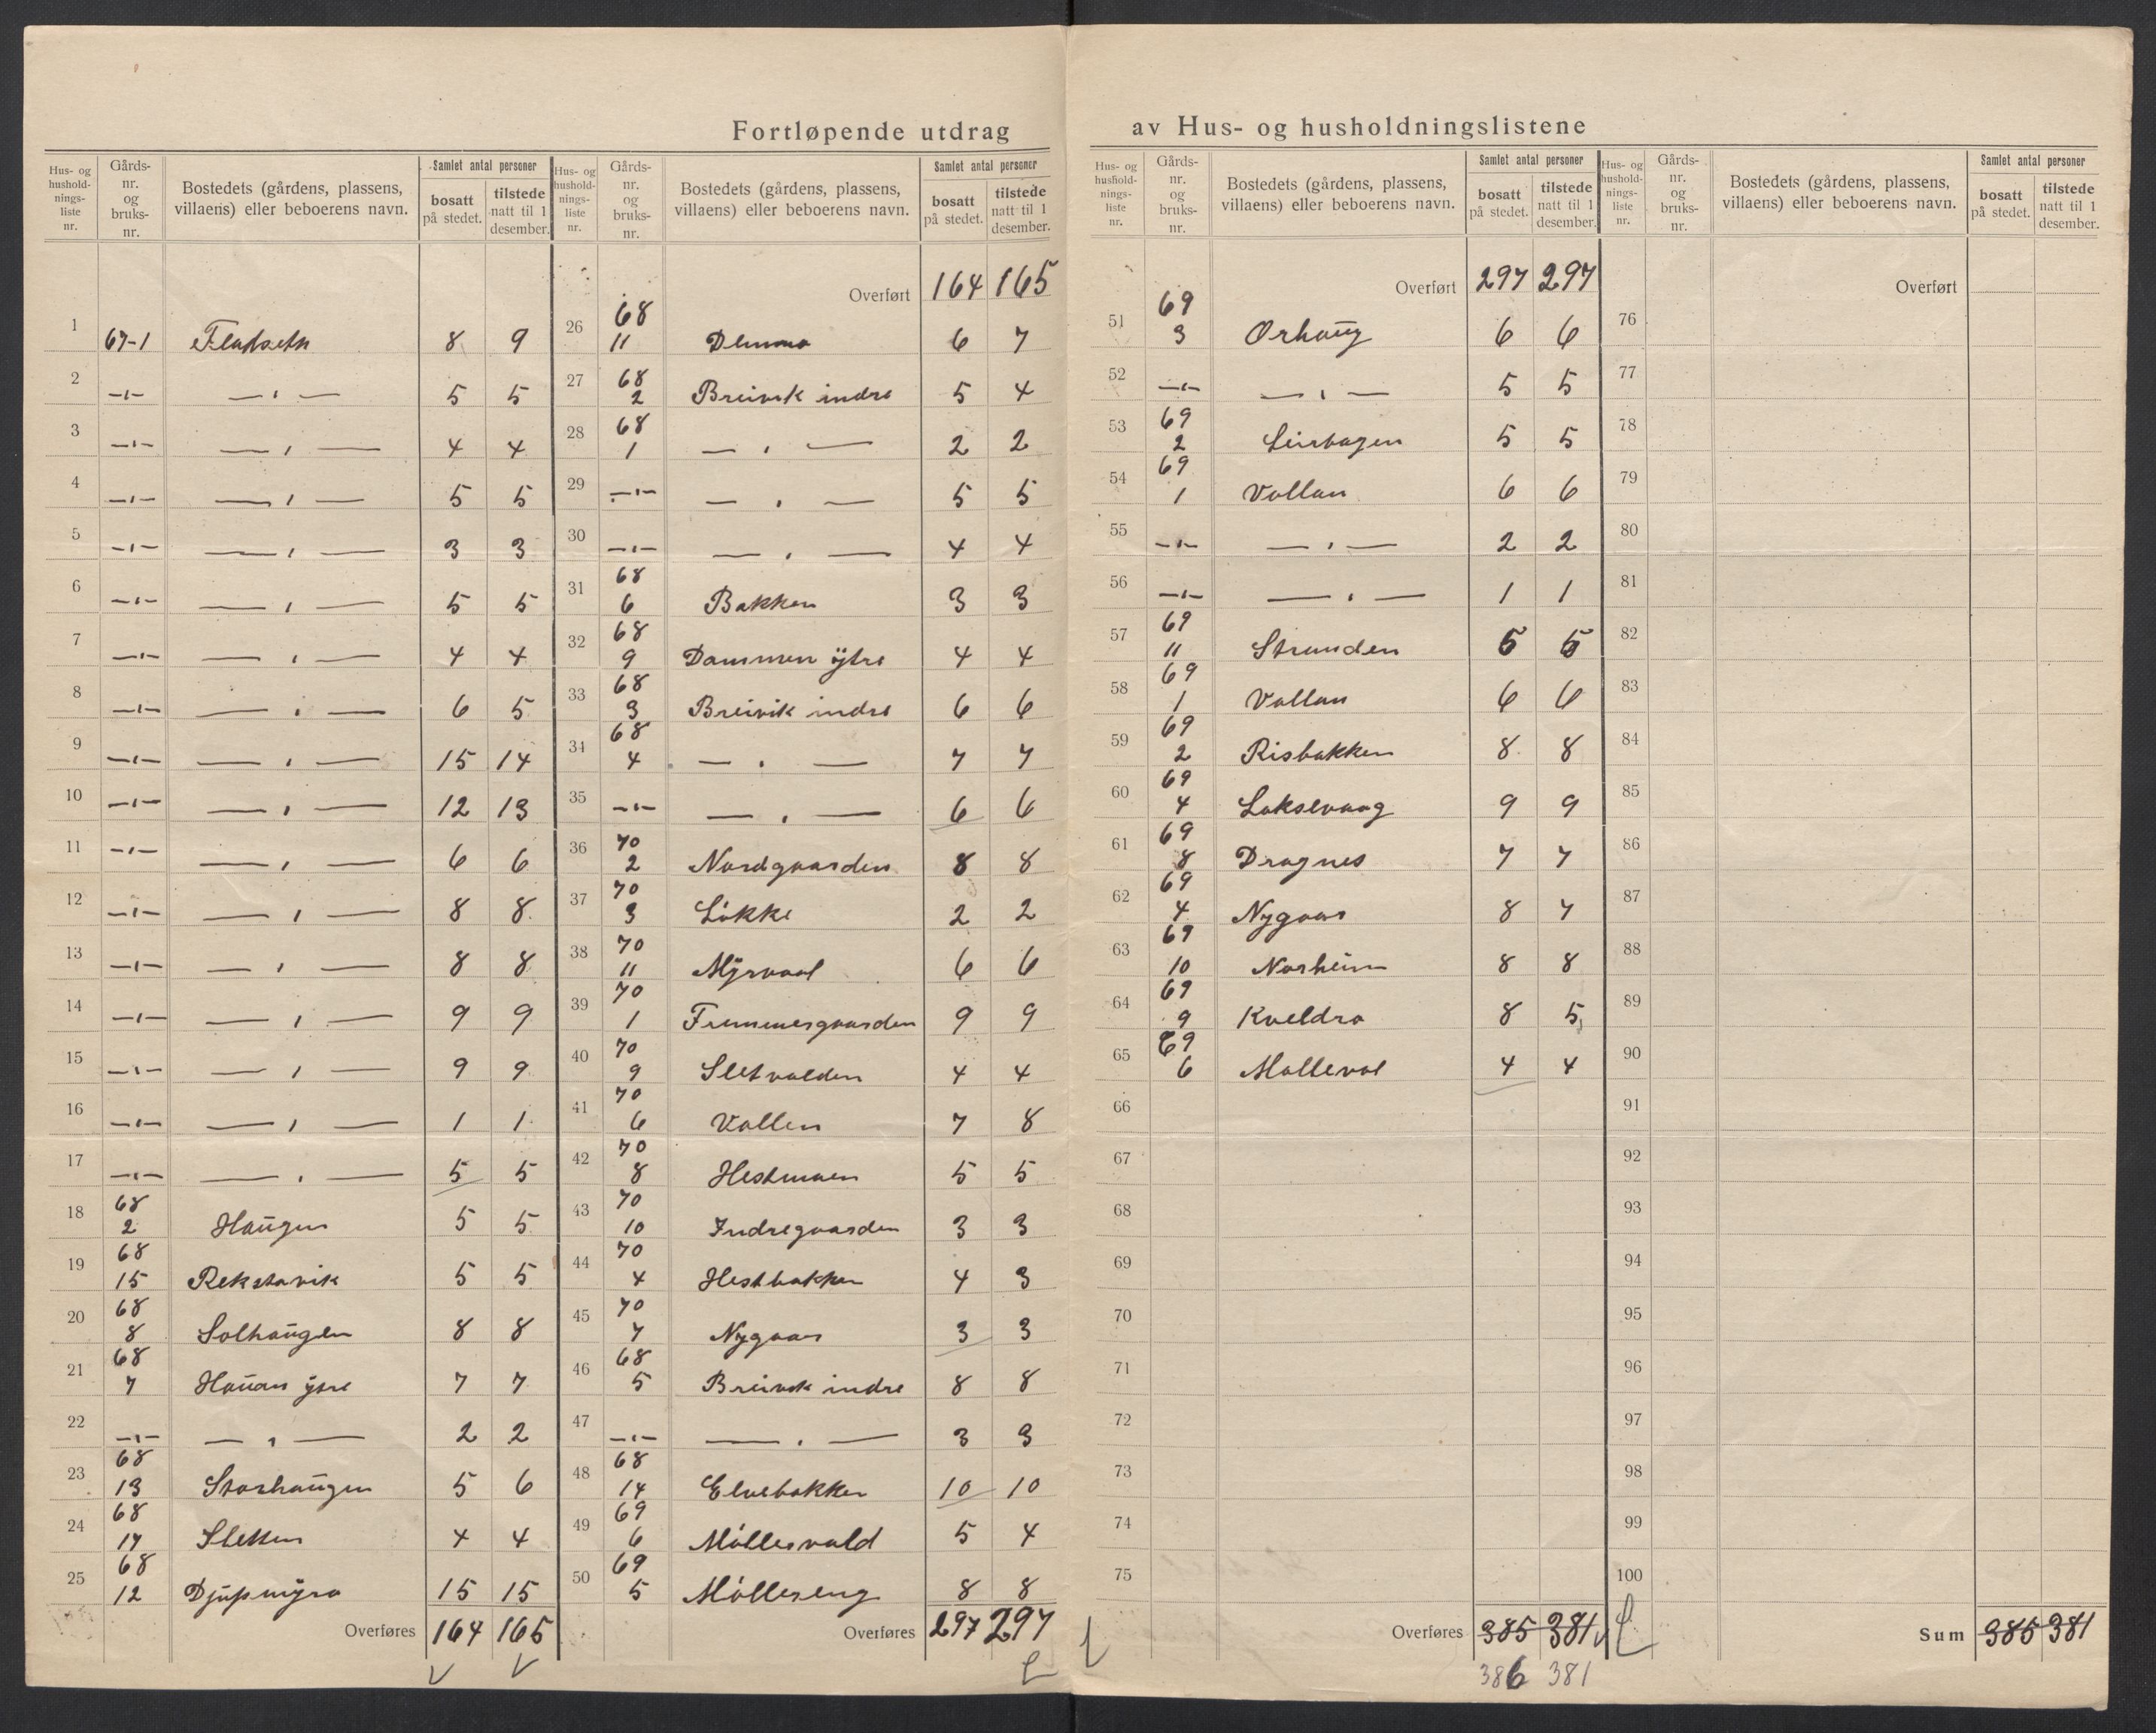 Fortløpende utdrag av Hus- og husholdningslistene
Hus- og husholdnings-liste nr. | Gårds-nr. og bruks-nr. | Bostedets (gårdens, plassens, villaens) eller beboerens navn. | Samlet antal personer | bosatt på stedet. | tilstede natt til 1 desember.
1 67-1 Fladseth 8 9
2 -"- — " — 5 5
3 -"- — " — 4 4
4 -"- — " — 5 5
5 -"- — " — 3 3
6 -"- — " — 5 5
7 -"- — " — 4 4
8 -"- — " — 6 5
9 -"- — " — 15 14
10 -"- — " — 12 13
11 -"- — " — 6 6
12 -"- — " — 8 8
13 -"- — " — 8 8
14 -"- — " — 9 9
15 -"- — " — 9 9
16 -"- — " — 1 1
17 -"- — " — 5 5
18 68 2 Haugen 5 5
19 68 15 Rekstavik 5 5
20 68 8 Solhaugen 8 8
21 68 7 Hauan ytre 7 7
22 -"- — " — 2 2
23 68 13 Storhaugen 5 6
24 68 17 Sletten 4 4
25 68 12 Djupmyra 15 15
Overføres 164 165
Hus- og husholdnings-liste nr. | Gårds-nr. og bruks-nr. | Bostedets (gårdens, plassens, villaens) eller beboerens navn. | Samlet antal personer | bosatt på stedet. | tilstede natt til 1 desember.
Overført 164 165
26 68 11 6 7
27 68 2 Breivik indre 5 4
28 68 1 — " — 2 2
29 -"- — " — 5 5
30 -"- — " — 4 4
31 68 6 Bakken 3 3
32 68 9 Dammen ytre 4 4
33 68 3 Breivik indre 6 6
34 68 4 — " — 7 7
35 -"- — " — 6 6
36 70 2 Nordgaarden 8 8
37 70 3 Løkke 2 2
38 70 11 Myrvold 6 6
39 70 1 Fremmergaarden 9 9
40 70 9 Sletvolden 4 4
41 70 6 Vollen 7 8
42 70 8 Hestmoen 5 5
43 70 10 Indregaarden 3 3
44 70 4 Hestbakken 4 3
45 70 7 Nygaar 3 3
46 68 5 Breivik indre 8 8
47 -"- — " — 3 3
48 68 14 Elvebakken 10 10
49 69 6 Möllervold 5 4
50 69 5 Möllereng 8 8
Overføres 297 297
Hus- og husholdnings-liste nr. | Gårds-nr. og bruks-nr. | Bostedets (gårdens, plassens, villaens) eller beboerens navn. | Samlet antal personer | bosatt på stedet. | tilstede natt til 1 desember.
Overført 297 297
51 69 3 Orhaug 6 6
52 -"- — " — 5 5
53 69 2 5 5
54 69 1 Vollan 6 6
55 -"- — " — 2 2
56 -"- — " — 1 1
57 69 11 Stranden 5 5
58 69 1 Vollan 6 6
59 69 2 Risbakken 8 8
60 69 4 Laksevaag 9 9
61 69 8 Dragnes 7 7
62 69 4 Nygaar 8 7
63 69 10 Norheim 8 8
64 69 9 Kveldro 8 5
65 69 6 Mollevol 4 4
66
67
68
69
70
71
72
73
74
75
Overføres 385 381
386 381
Hus- og husholdnings-liste nr. | Gårds-nr. og bruks-nr. | Bostedets (gårdens, plassens, villaens) eller beboerens navn. | Samlet antal personer | bosatt på stedet. | tilstede natt til 1 desember.
Overført
76
77
78
79
80
81
82
83
84
85
86
87
88
89
90
91
92
93
94
95
96
97
98
99
100
Sum 385 381